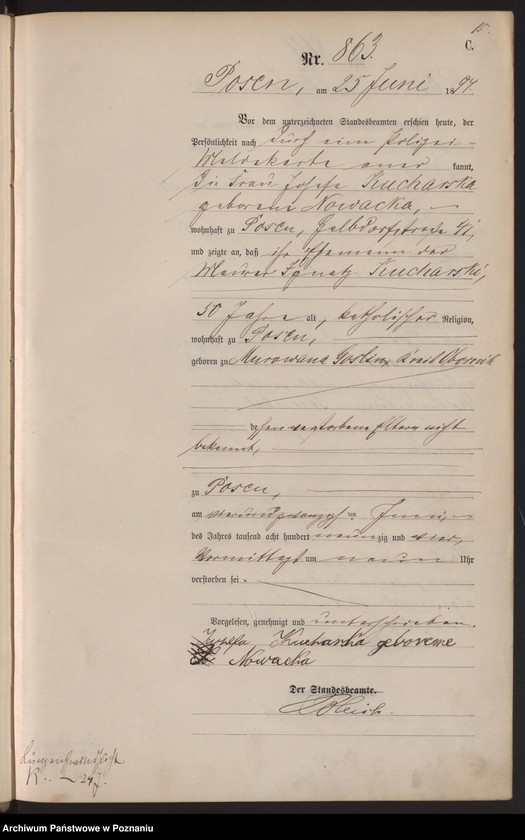 15.
C.
Nr. 863.
Posen, am 25 Juni 1894.
Vor dem unterzeichneten Standesbeamten erschien heute, der
Persönlichkeit nach durch eine Polizei-
Meldekarte aner kannt,
die Frau Josefa Kucharska
geborene Nowacka,
wohnhaft zu Posen, Halbdorfstraße
und zeigte an, daß ihr Ehemann der
Maurer Ignatz Kucharski,
50 Jahre alt, katholischer Religion,
wohnhaft zu Posen,
geboren zu Murowana Goslin, Kreis Obornik
dessen verstorbene Eltern nicht
bekannt,
zu Posen,
am vierundzwanzigsten Juni,
des Jahres tausend acht hundert neunzig und vier,
Vormittags um neun Uhr
verstorben sei.
Vorgelesen, genehmigt und unterschrieben.
Kucharska geborene
Nowacka
Der Standesbeamte.
K. 24/7.
Archiwum Państwowe w Poznaniu